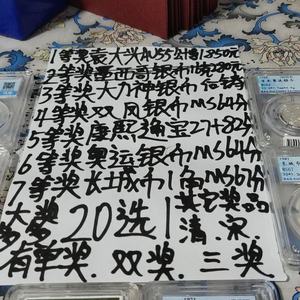 1等奖袁大头AU55公博1350元
2等奖墨西哥银币
3等奖大力神银币
4等奖双凤银币MS64分
5等奖康熙通宝27+82分
6等奖奥运银币MS64分
7等奖长城币1角MS67分
大奖 其它奖品
多多 20选1 清.宋
有单奖.双奖.三奖